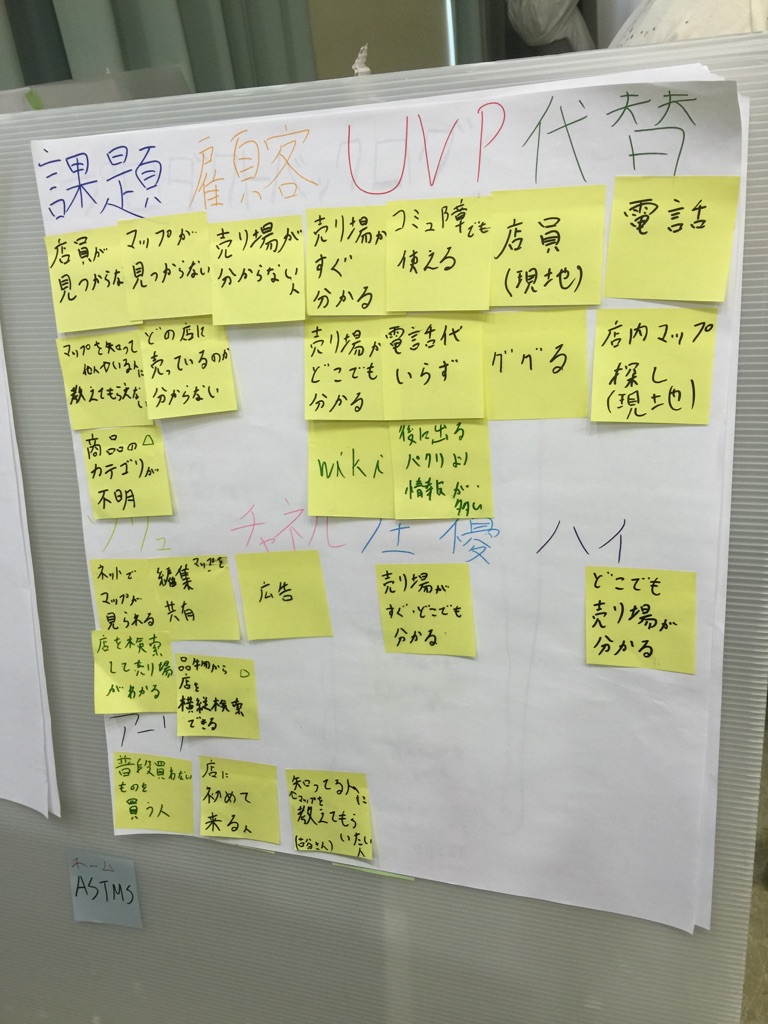 課題 顧客 UVP 代替
店員が
見つからな
マップが
見つからない
売り場が
分からない人
売り場が
すぐ
分かる
コミュ障でも
使える
店員
(現地)
電話
マップを知って
教えてもらえない
どの店に
売っているのか
分からない
売り場が
どこでも
分かる
電話代
いらず
ググる
店内マップ
探し
(現地)
商品の
カテゴリが
不明
wiki
後に出る
パクリより
情報が
多い
ソリュ チャネル 圧 優 ハイ
ネットで
マップが
見られる
編集マップを
共有
広告
売り場が
すぐ・どこでも
分かる
どこでも
売り場が
分かる
店を検索
して売り場
がわかる
品名から
店を
横縦検索
できる
アーリ
普段買わない
ものを
買う人
店に
初めて
来る人
知ってる人に
マップを
教えてもら
いたい
人
(古谷さん)
ホーム
ASTMS